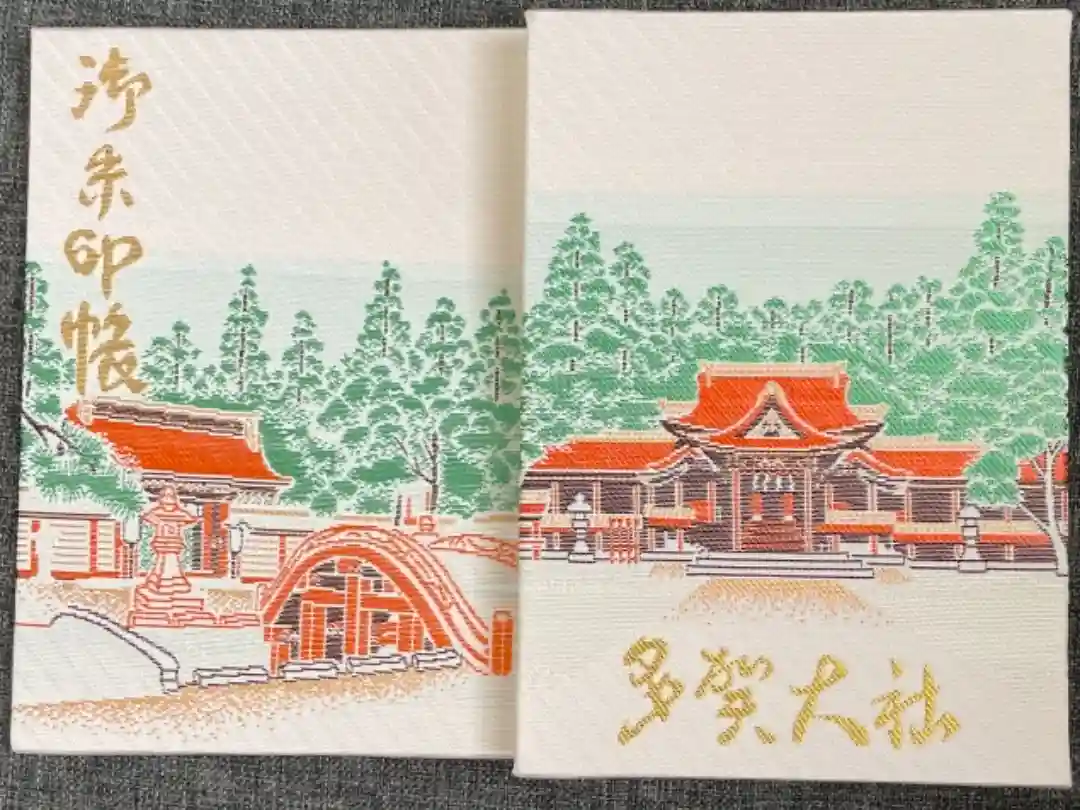 御朱印帳
多賀大社